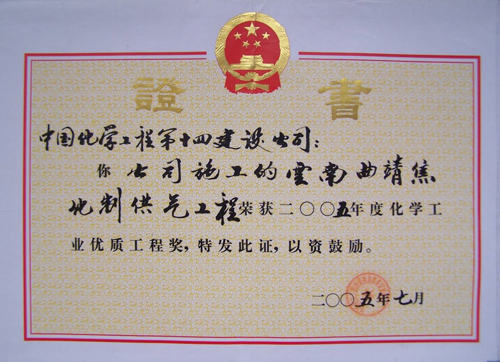 證書
中国化学工程第十四建设公司:
你公司施工的雲南曲靖焦
化制供气工程荣获二〇〇五年度化学工
业优质工程奖，特发此证，以资鼓励。
二〇〇五年七月